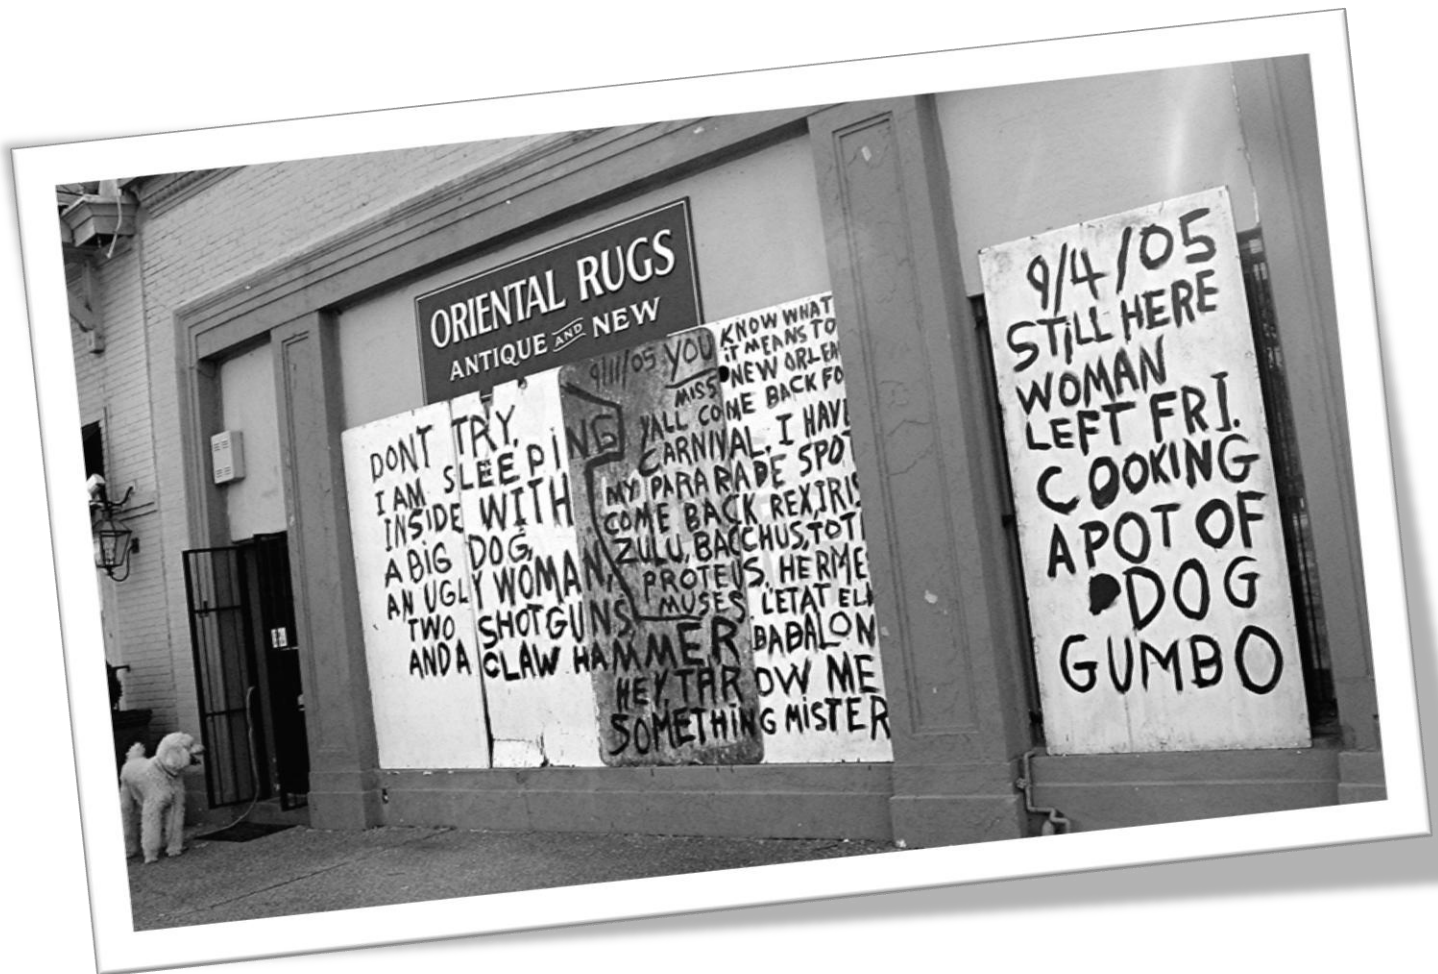 ORIENTAL RUGS
ANTIQUE AND NEW
DONT TRY.
I AM SLEEPING
INSIDE WITH
A BIG DOG,
AN UGLY WOMAN,
TWO SHOTGUNS
AND A CLAW HAMMER
9/11/05 YOU KNOW WHAT
IT MEANS TO
MISS NEW ORLEAN
YALL COME BACK FO
CARNIVAL. I HAVE
MY PARARADE SPOT
COME BACK REX, IRIS
ZULU, BACCHUS, TOT
PROTEUS, HERME
MUSES L'ETAT EL
BABALON
HEY, THROW ME
SOMETHING MISTER
9/4/05
STILL HERE
WOMAN
LEFT FRI.
COOKING
A POT OF
DOG
GUMBO